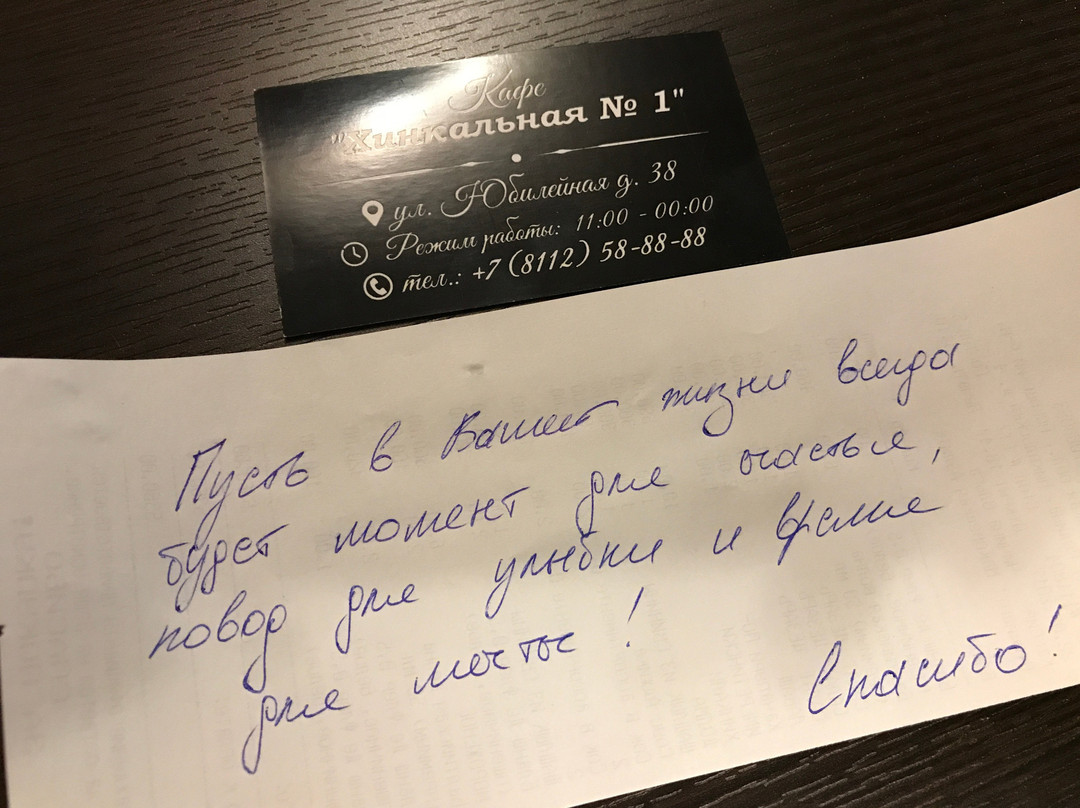 Кафе
"Хинкальная № 1"
ул. Юбилейная д. 38
Режим работы: 11:00 - 00:00
тел.: +7 (8112) 58-88-88
Пусть в Вашей жизни всегда
будет момент для счастья,
повод для улыбки и время
для мечты!
Спасибо!